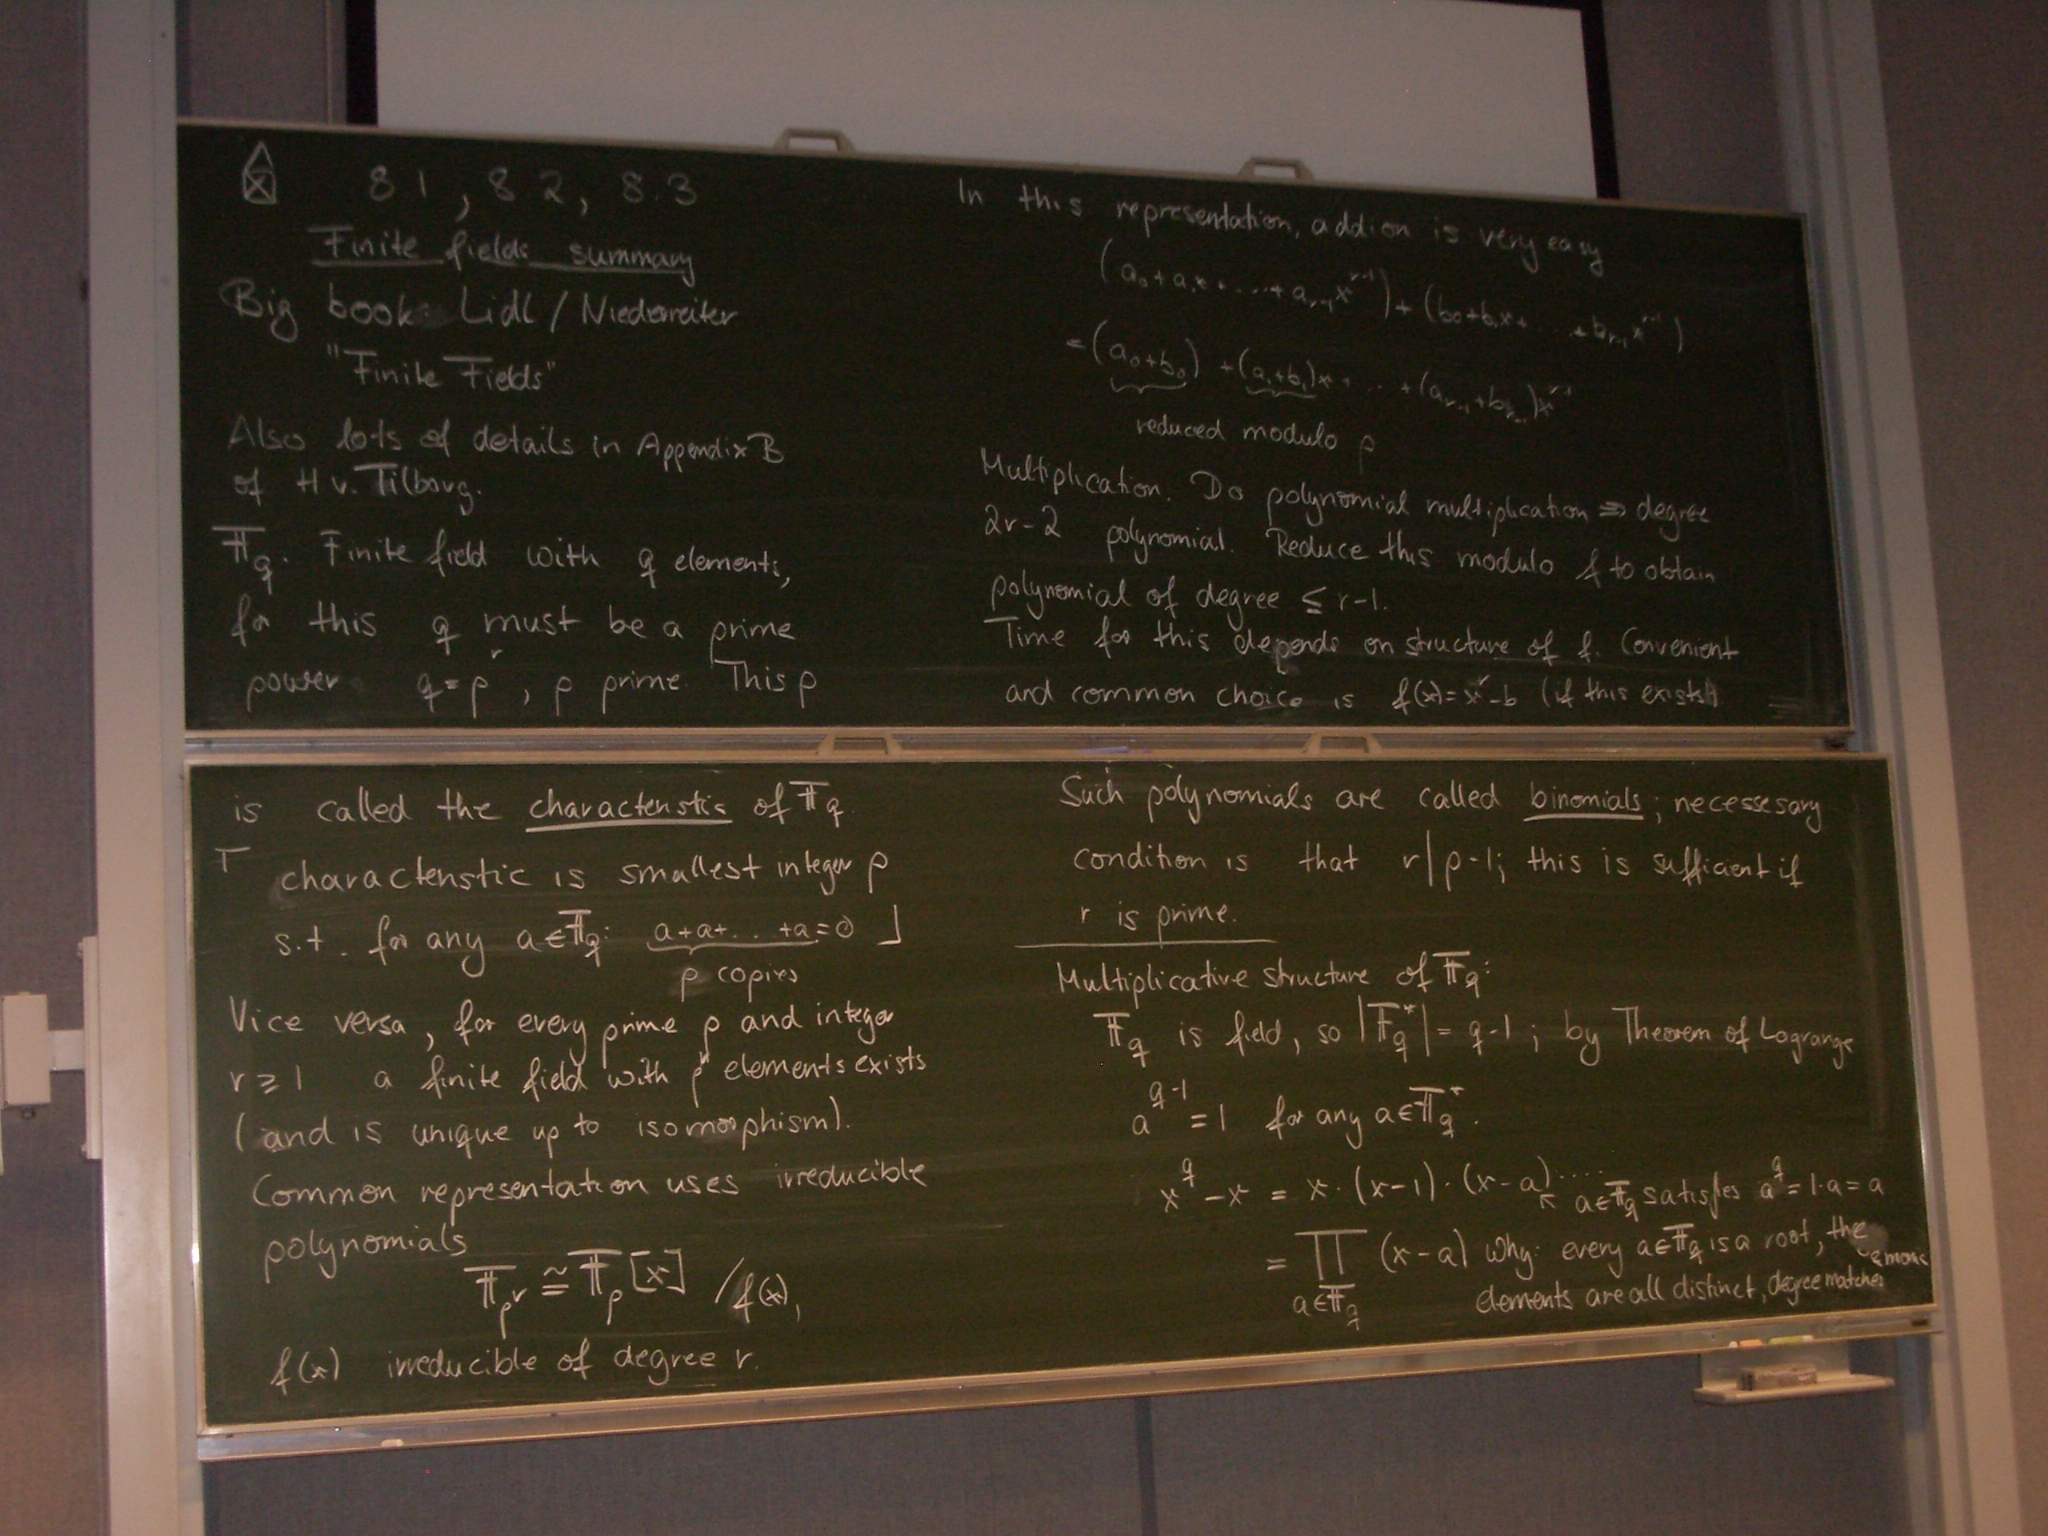 8.1, 8.2, 8.3
Finite fields summary
Big book: Lidl / Niederreiter
"Finite Fields"
Also lots of details in Appendix B
of H.v. Tilborg.
𝔽_q. Finite field with q elements,
for this q must be a prime
power q = p^r, p prime. This p
is called the characteristic of 𝔽_q.
⌈ characteristic is smallest integer p
s.t. for any a∈𝔽_q: a+a+...+a=0 ⌋
p copies
Vice versa, for every prime p and integer
r ≥ 1 a finite field with p^r elements exists
(and is unique up to isomorphism).
Common representation uses irreducible
polynomials
𝔽_{p^r} ≅ 𝔽_p[x] / f(x),
f(x) irreducible of degree r.
In this representation, addion is very easy
(a_0+a_1x+....+a_{r-1}x^{r-1})+(b_0+b_1x+....+b_{r-1}x^{r-1})
=(a_0+b_0)+(a_1+b_1)x+...+(a_{r-1}+b_{r-1})x^{r-1}
reduced modulo p
Multiplication. Do polynomial multiplication ⇒ degree
2r-2 polynomial. Reduce this modulo f to obtain
polynomial of degree ≤ r-1.
Time for this depends on structure of f. Convenient
and common choice is f(x)=x^r-b (if this exists)
Such polynomials are called binomials; necessesary
condition is that r|p-1; this is sufficient if
r is prime.
Multiplicative structure of 𝔽_q:
𝔽_q is field, so |𝔽_q^*| = q-1; by Theorem of Lagrange
a^{q-1} = 1 for any a∈𝔽_q^*.
x^q - x = x·(x-1)·(x-a)..... ↖ a∈𝔽_q satisfies a^q=1·a=a
= ∏_{a∈𝔽_q} (x-a) Why: every a∈𝔽_q is a root, the
elements are all distinct, degree matches